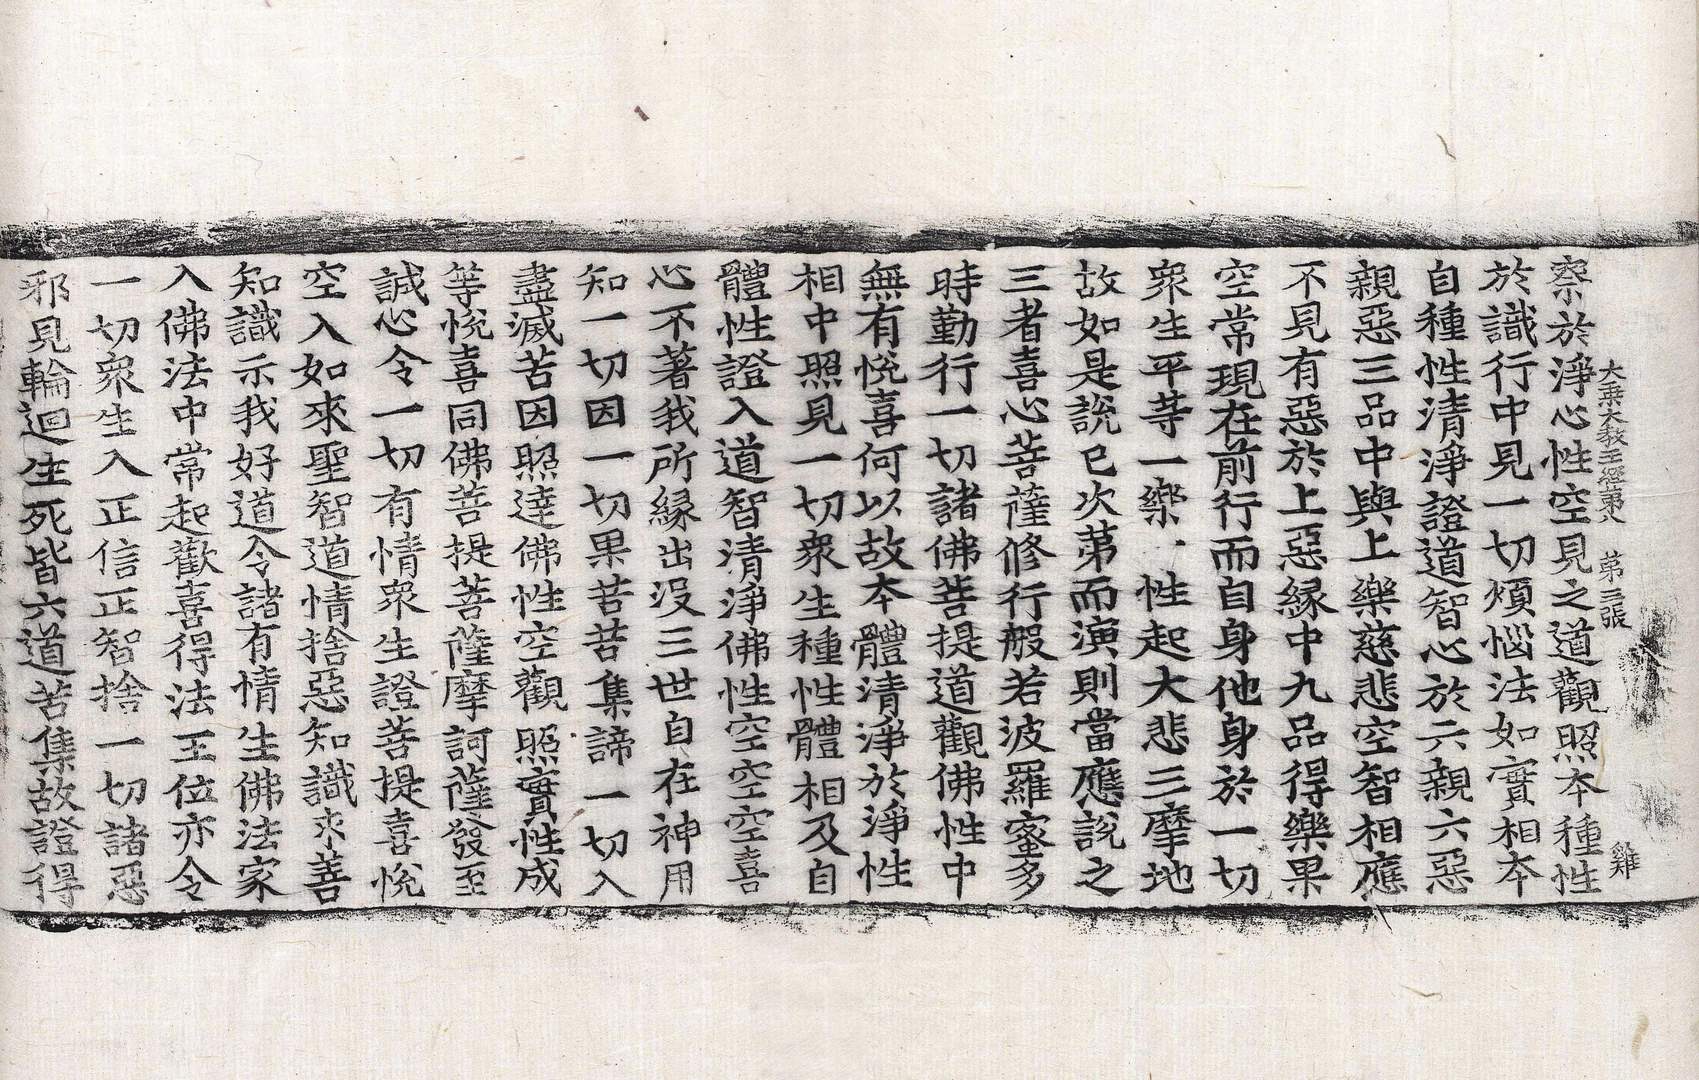 大乗大教王經第八　第三張　雞
察於淨心性空見之道觀照本種性
於識行中見一切煩惱法如實相本
自種性清淨證道智心於六親六惡
親惡三品中與上樂慈悲空智相應
不見有惡於上惡緣中九品得樂果
空常現在前行而自身他身於一切
衆生平等一樂一性起大悲三摩地
故如是說已次第而演則當應說之
三者喜心菩薩修行般若波羅蜜多
時勤行一切諸佛菩提道觀佛性中
無有悅喜何以故本體清淨於淨性
相中照見一切衆生種性體相及自
體性證入道智清淨佛性空空空喜
心不著我所緣出沒三世自在神用
知一切因一切果苦苦集諦一切入
盡滅苦因照達佛性空觀照實性成
等悅喜同佛菩提菩薩摩訶薩發至
誠心令一切有情衆生證菩提喜悅
空入如來聖智道情捨惡知識求善
知識示我好道令諸有情生佛法家
入佛法中常起歡喜得法王位亦令
一切衆生入正信正智捨一切諸惡
邪見輪迴生死皆六道苦集故證得